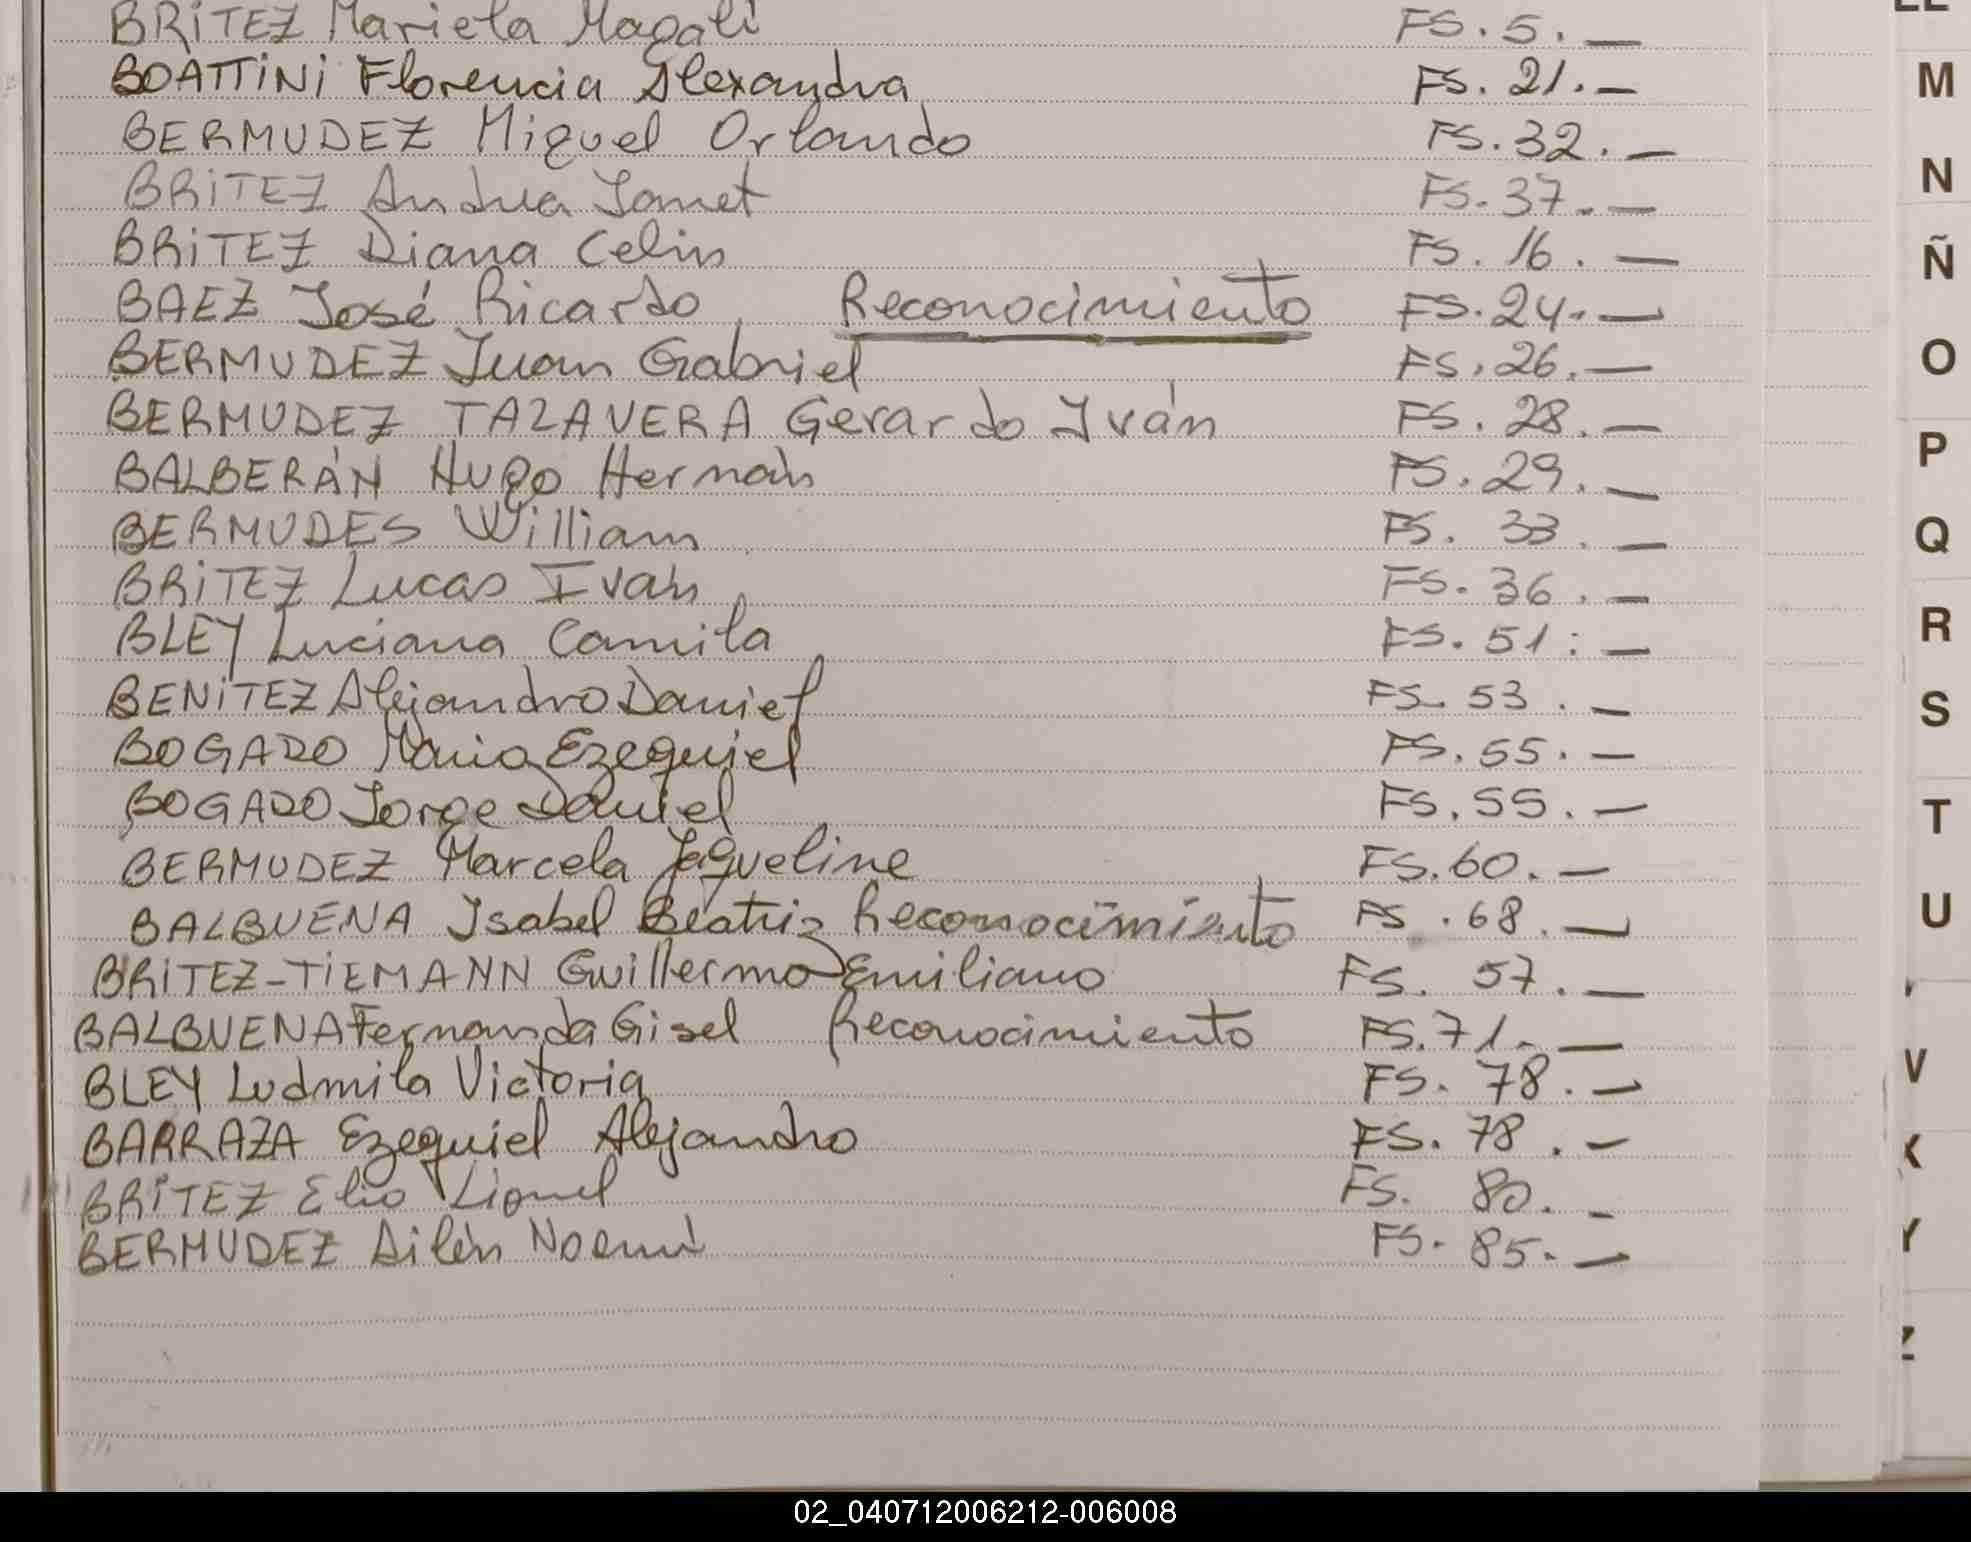 BRITEZ Mariela Magali FS. 5. —
BOATTINI Florencia Alexandra FS. 21. —
BERMUDEZ Miguel Orlando FS. 32. —
BRITEZ Andrea Jamet FS. 37. —
BRITEZ Diana Celin FS. 16. —
BAEZ José Ricardo Reconocimiento FS. 24. —
BERMUDEZ Juan Gabriel FS. 26. —
BERMUDEZ TALAVERA Gerardo Iván FS. 28. —
BALBERÁN Hugo Hernán FS. 29. —
BERMUDES William FS. 33. —
BRITEZ Lucas Ivan FS. 36. —
BLEY Luciana Camila FS. 51: —
BENITEZ Alejandro Daniel FS. 53. —
BOGADO Mario Ezequiel FS. 55. —
BOGADO Jorge Daniel FS. 55. —
BERMUDEZ Marcela Jaqueline FS. 60. —
BALBUENA Isabel Beatriz Reconocimiento FS. 68. —
BRITEZ-TIEMANN Guillermo Emiliano FS. 57. —
BALBUENA Fernanda Gisel Reconocimiento FS. 71. —
BLEY Ludmila Victoria FS. 78. —
BARRAZA Ezequiel Alejandro FS. 78. —
BRITEZ Elio Lionel FS. 80. —
BERMUDEZ Ailén Noemí FS. 85. —
M
N
Ñ
O
P
Q
R
S
T
U
V
X
Y
Z
02_040712006212-006008